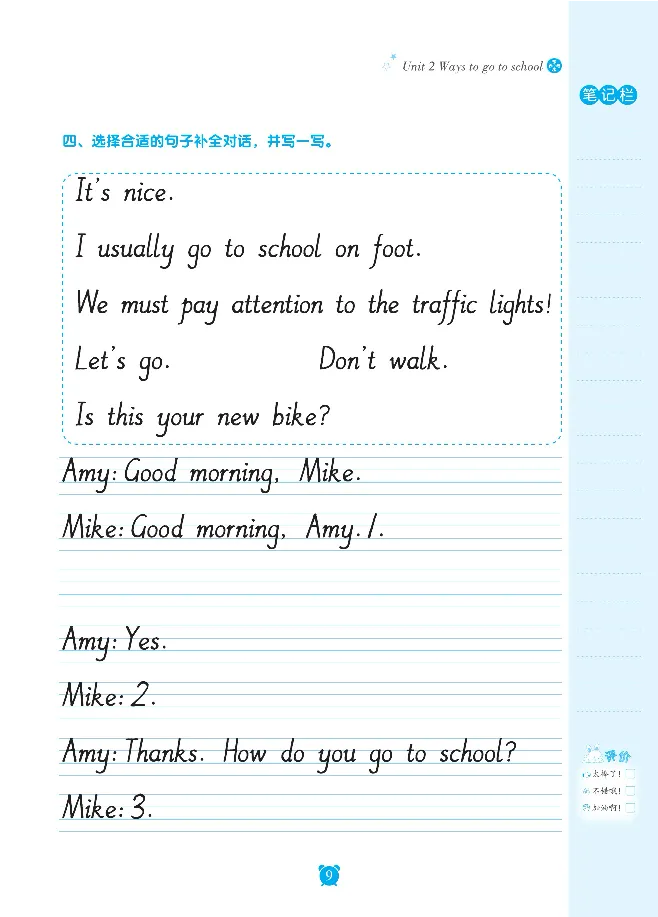 Unit 2 Ways to go to school
笔记栏
四、选择合适的句子补全对话，并写一写。
It's nice.
I usually go to school on foot.
We must pay attention to the traffic lights!
Let's go. Don't walk.
Is this your new bike?
Amy: Good morning, Mike.
Mike: Good morning, Amy. 1.
Amy: Yes.
Mike: 2.
Amy: Thanks. How do you go to school?
Mike: 3.
评价
太棒了!
不错哦!
加油啊!
9